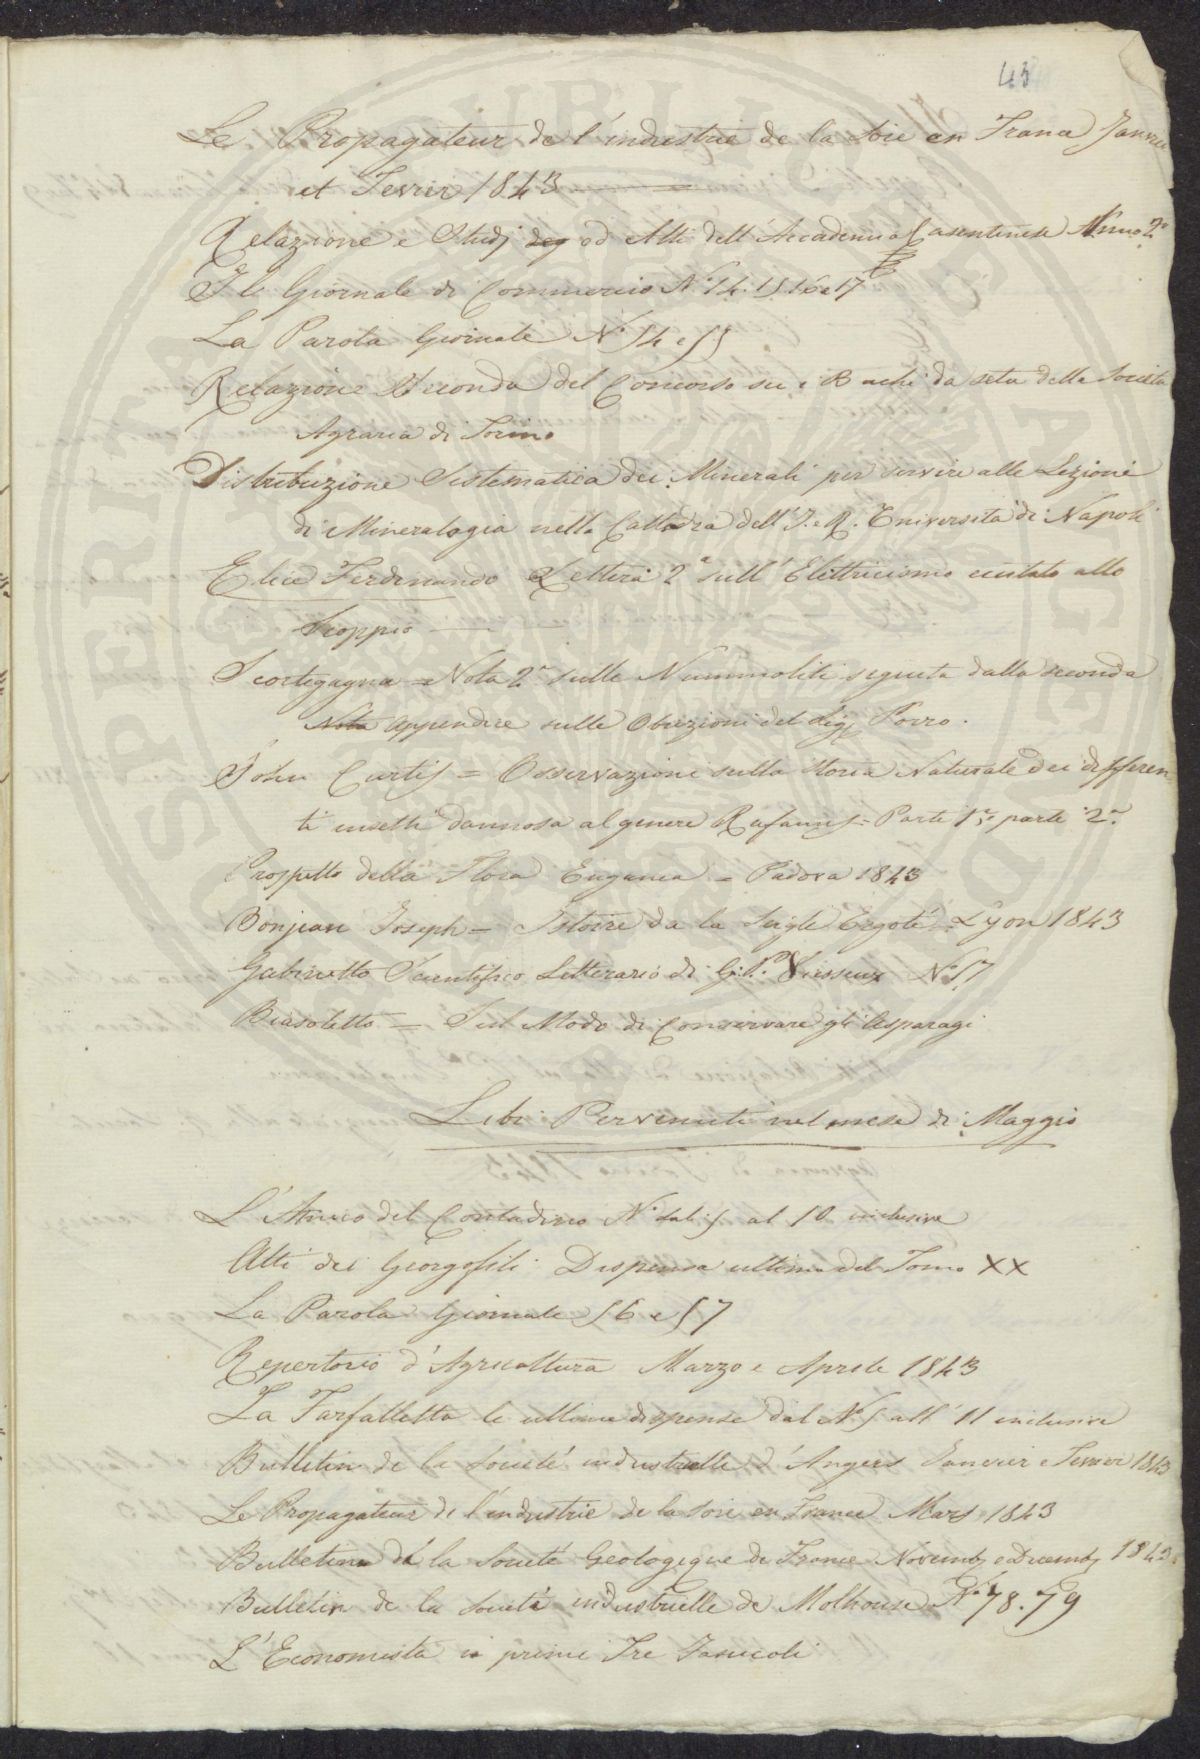 43
Le Propagateur de l'industrie de la Soie en France Janvier
et Fevrier 1843
Relazione e Studj deg od Atti dell'Accademia Casentinese Anno 2°
Il Giornale di Commercio N.° 14. 15. 16 e 17
La Parola Giornale N.° 14 e 15
Relazione Seconda del Concorso su i Bachi da seta della Società
Agraria di Torino
Distribuzione Sistematica dei Minerali per servire alle Lezioni
di Mineralogia nella Cattedra dell'I. e R. Università di Napoli
Elice Ferdinando Lettera 2ª sull'Elettricismo eccitato allo
Scoppio
Scortegagna = Nota 2ª sulle Nummoliti seguita dalla seconda
Nota appendice sulle Obiezioni del Sig. Porro.
John Curtis = Osservazioni sulla storia Naturale dei differen
ti insetti dannosa al genere Rafanus = Parte 1ª e parte 2ª
Prospetto della Flora Euganea = Padova 1843
Bonjean Joseph = Istoire da la Seigle Ergoté = Lyon 1843
Gabinetto Scientifico Letterario di G. P. Viesseux N.° 17
Biasoletto = Sul Modo di Conservare gli Asparagi
Libri Pervenuti nel mese di Maggio
L'Amico del Contadino N.° dal 5 al 10 inclusive
Atti dei Georgofili Dispensa ultima del Tomo XX
La Parola Giornale 16 e 17
Repertorio d'Agricoltura Marzo e Aprile 1843
La Farfalletta le ultime dispense dal N.° 5 all'11 inclusive
Bulletin de la Societé industrielle d'Angers Janvier e Fevrier 1843
Le Propagateur de l'industrie de la soie en France Mars 1843
Bulletin de la Societé Geologique de France Novemb. e Decemb. 1843
Bulletin de la Societé industrielle de Molhouse N.° 78. 79
L'Economista i primi Tre Fascicoli
SPERITA PUBLICE ANCEND